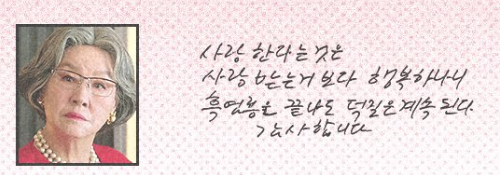 사랑 한다는 것은
사랑 받는거 보다 행복하나니
흑염룡은 끝나도 덕질은 계속 된다.
감사합니다